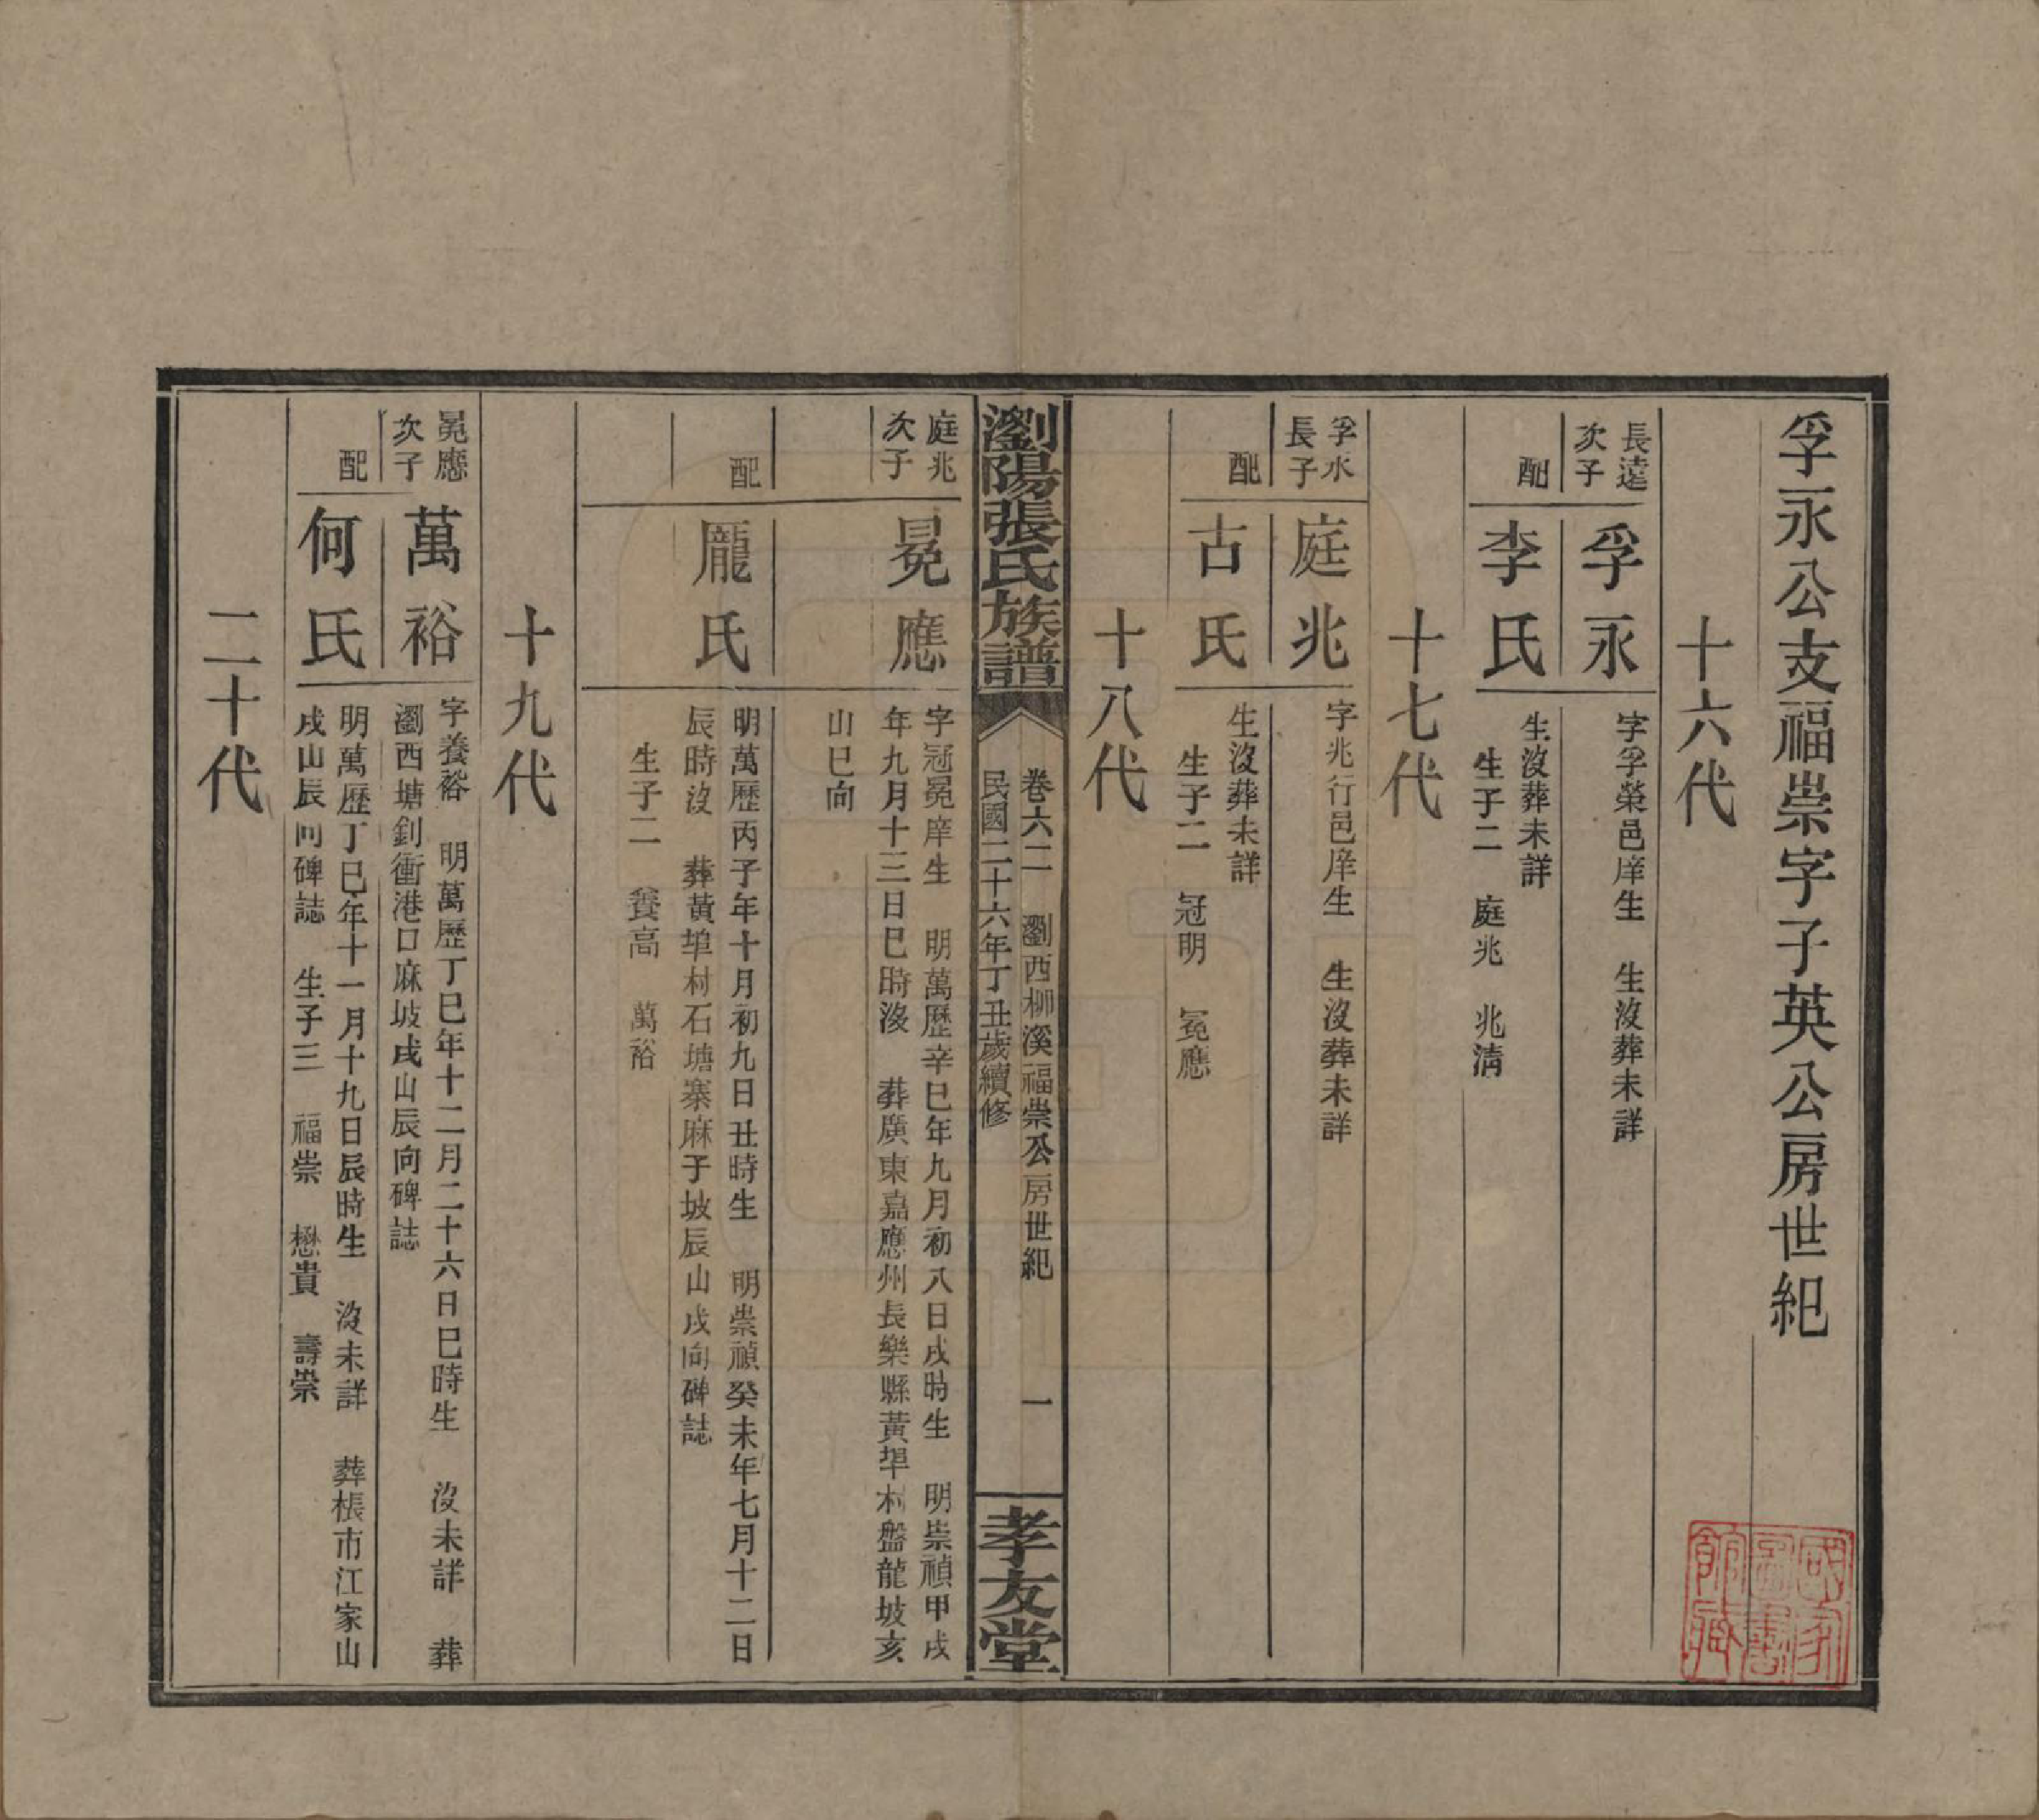 孚永公支福崇字子英公房世紀
十六代
長遠
次子
孚永
字孚榮邑庠生　生沒葬未詳
配
李氏
生沒葬未詳
生子二　庭兆　兆清
十七代
孚永
長子
庭兆
字兆行邑庠生　生沒葬未詳
配
古氏
生沒葬未詳
生子二　冠明　冕應
十八代
瀏陽張氏族譜
卷六二　瀏西柳溪福崇公房世紀　一
民國二十六年丁丑歲續修
孝友堂
庭兆
次子
冕應
字冠冕庠生　明萬歷辛巳年九月初八日戌時生　明崇禎甲戌
年九月十三日巳時沒　葬廣東嘉應州長樂縣黃埠村盤龍坡亥
山巳向
配
龎氏
明萬歷丙子年十月初九日丑時生　明崇禎癸未年七月十二日
辰時沒　葬黃埠村石塘寨麻子坡辰山戌向碑誌
生子二　養高　萬裕
十九代
冕應
次子
萬裕
字養裕　明萬歷丁巳年十二月二十六日巳時生　沒未詳　葬
瀏西塘釗衝港口麻坡戌山辰向碑誌
配
何氏
明萬歷丁巳年十一月十九日辰時生　沒未詳　葬棖市江家山
戌山辰向碑誌　生子三　福崇　懋貴　壽崇
二十代
國家圖書館藏